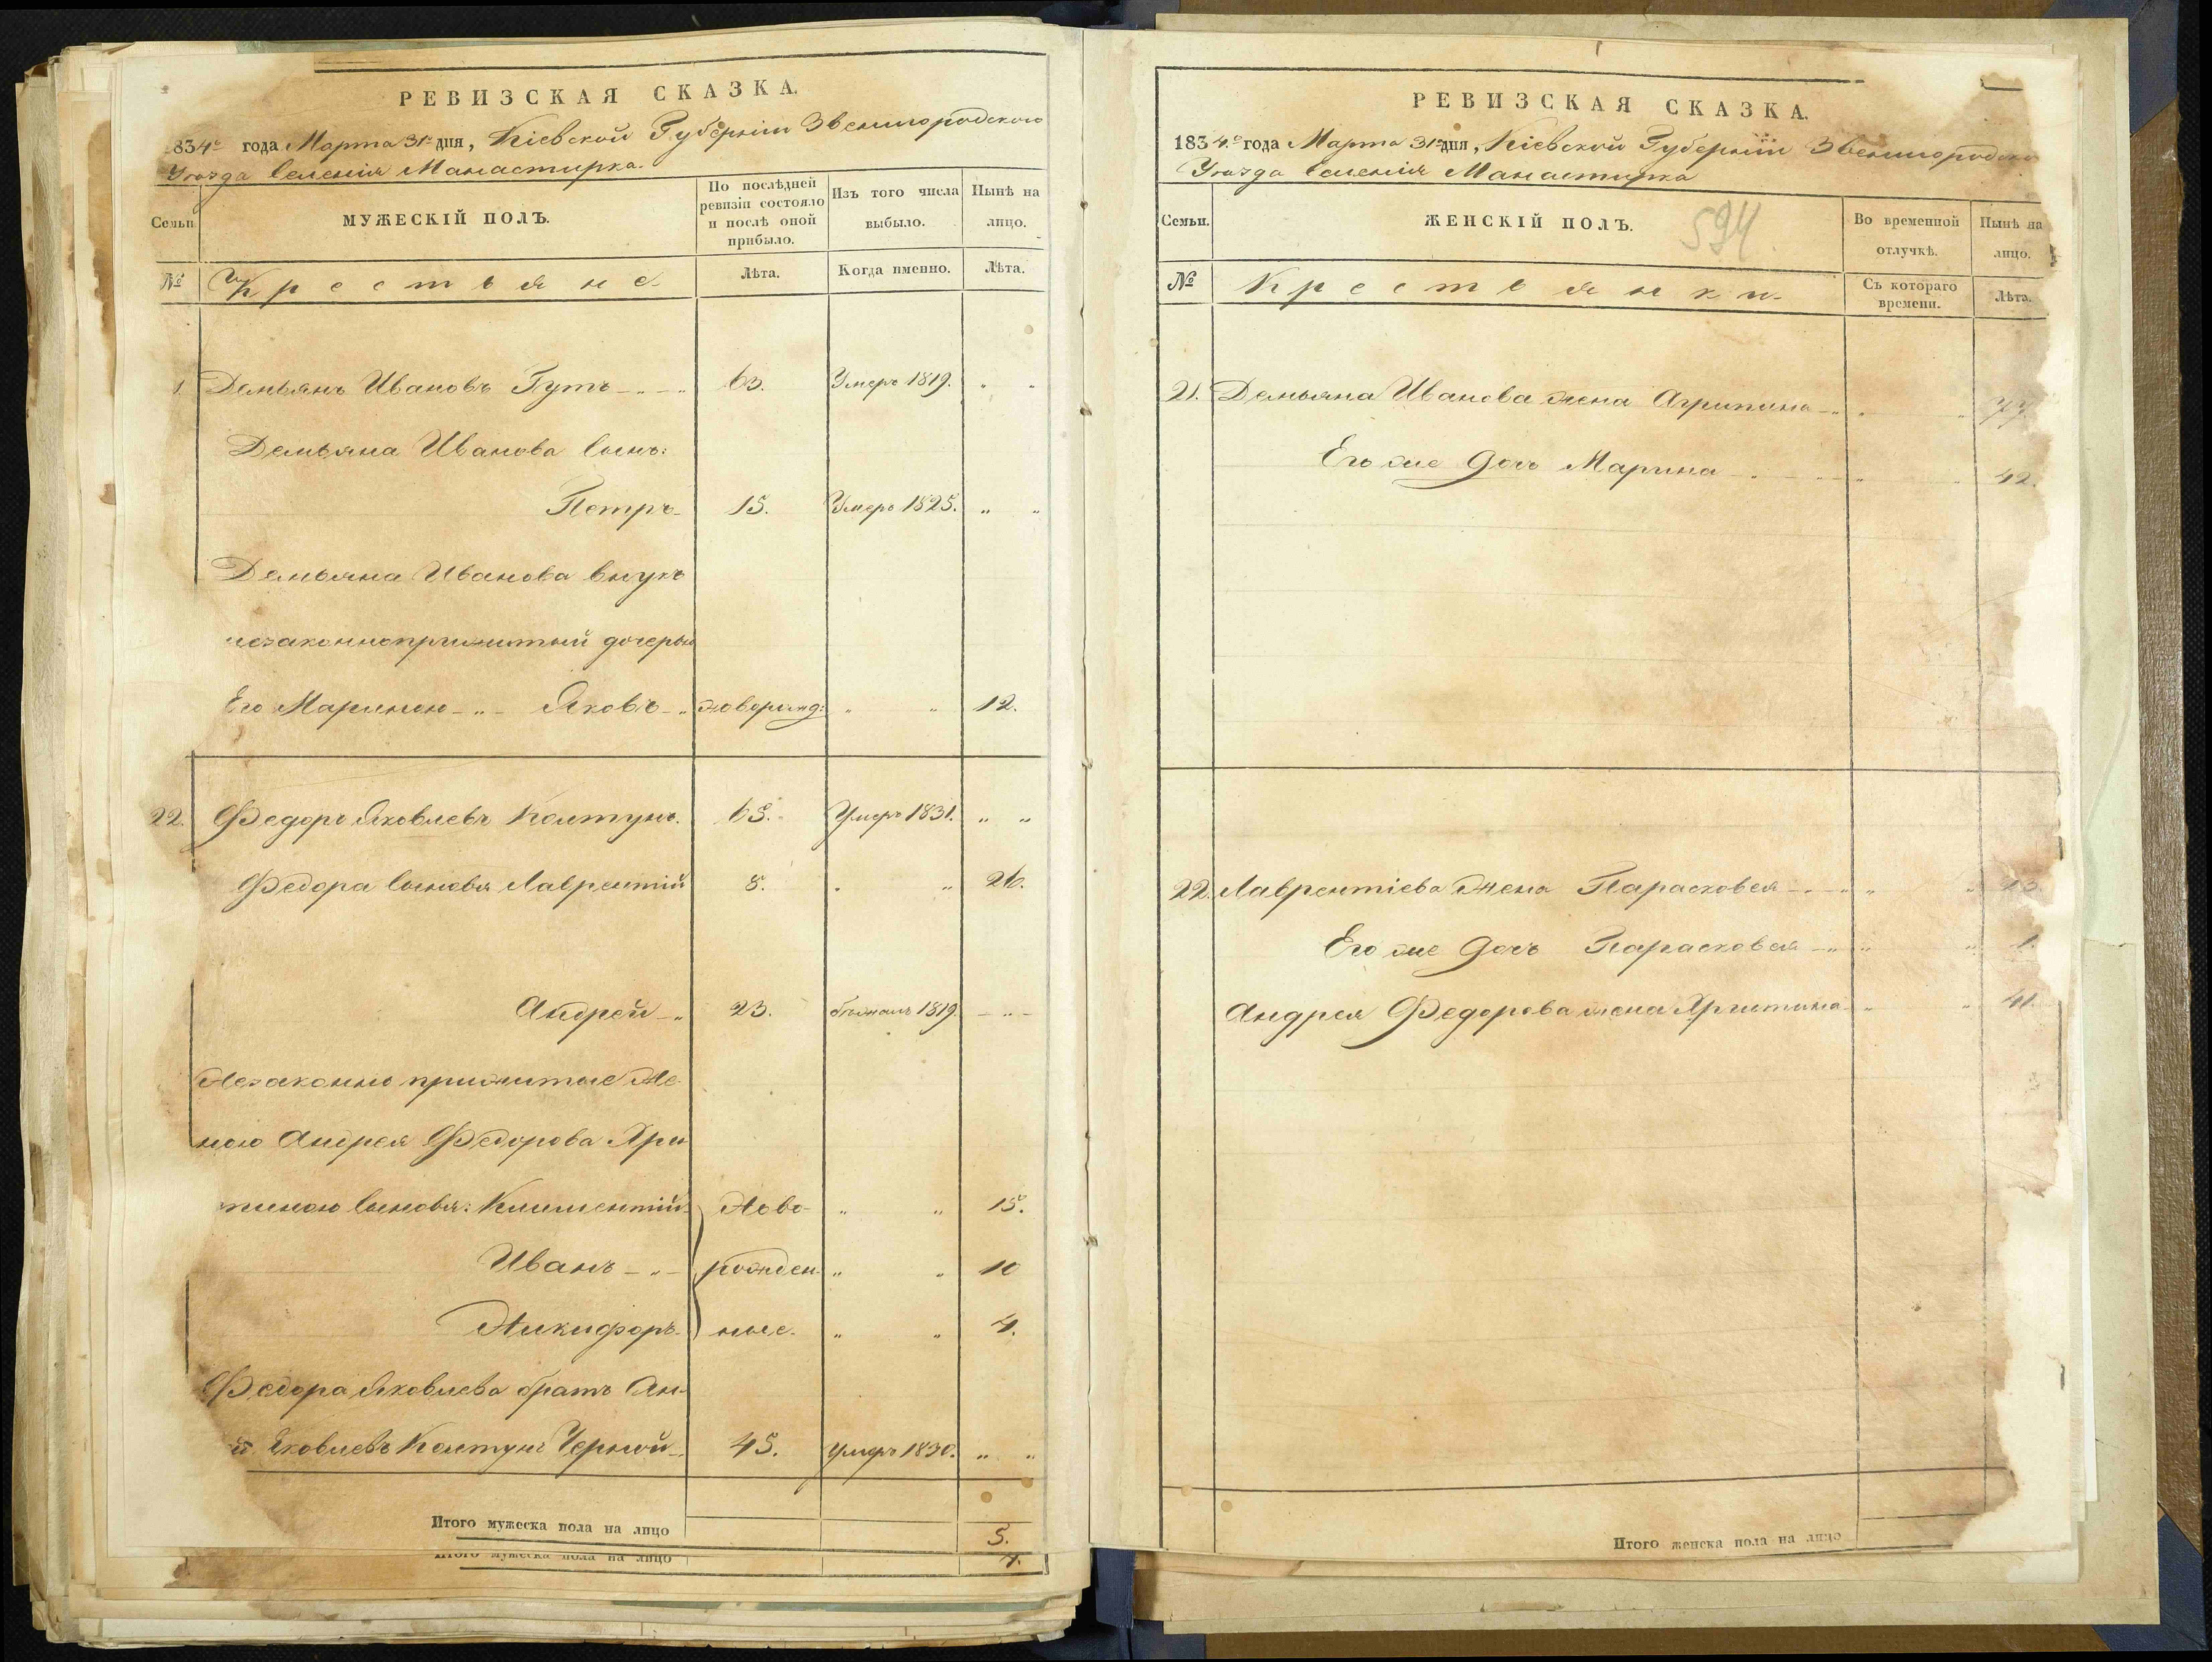 РЕВИЗСКАЯ СКАЗКА.
834го года Марта 31го дня, Кіевской Губерніи Звенигородского
Уѣзда Селенія Манастирка.
Семьи.
МУЖЕСКІЙ ПОЛЪ.
По послѣдней ревизіи состояло и послѣ оной прибыло.
Изъ того числа выбыло.
Нынѣ на лицо.
№
Крестьяне
Лѣта.
Когда именно.
Лѣта.
1. Демьянъ Ивановъ Гутъ 63. Умеръ 1819. " "
Демьяна Иванова Сынъ:
Петръ 15. Умеръ 1825. " "
Демьяна Иванова внукъ
незаконноприжитый дочерью
Его Мариною Яковъ новорожд: " " 12.
22. Федоръ Яковлевъ Колтунъ. 65. Умеръ 1831. " "
Федора Сыновья Лаврентій 8. " " 26.
Андрей 23. бѣжалъ 1819.
Незаконно прижитые Же-
ною Андрея Федорова Хри
тиною Сыновья: Климентій Ново- " " 15.
Иванъ рожден- " " 10
Никифоръ ные. " " 4.
Федора Яковлева братъ Ан-
й Яковлевъ Колтунъ Черный 45. умеръ 1830. " "
Итого мужеска пола на лицо 5.
Итого мужеска пола на лицо
РЕВИЗСКАЯ СКАЗКА.
1834го года Марта 31го дня, Кіевской Губерніи Звенигородско
Уѣзда Селенія Манастирка
Семьи.
ЖЕНСКІЙ ПОЛЪ.
594.
Во временной отлучкѣ.
Нынѣ на лицо.
№
Крестьянки
Съ котораго времени.
Лѣта.
21. Демьяна Иванова жена Агрипина 77.
Его же дочь Марина 42.
22. Лаврентіева Жена Парасковея " " 23.
Его же дочь Парасковея " " 1.
Андрея Федорова жена Христина " " 41.
Итого женска пола на лицо